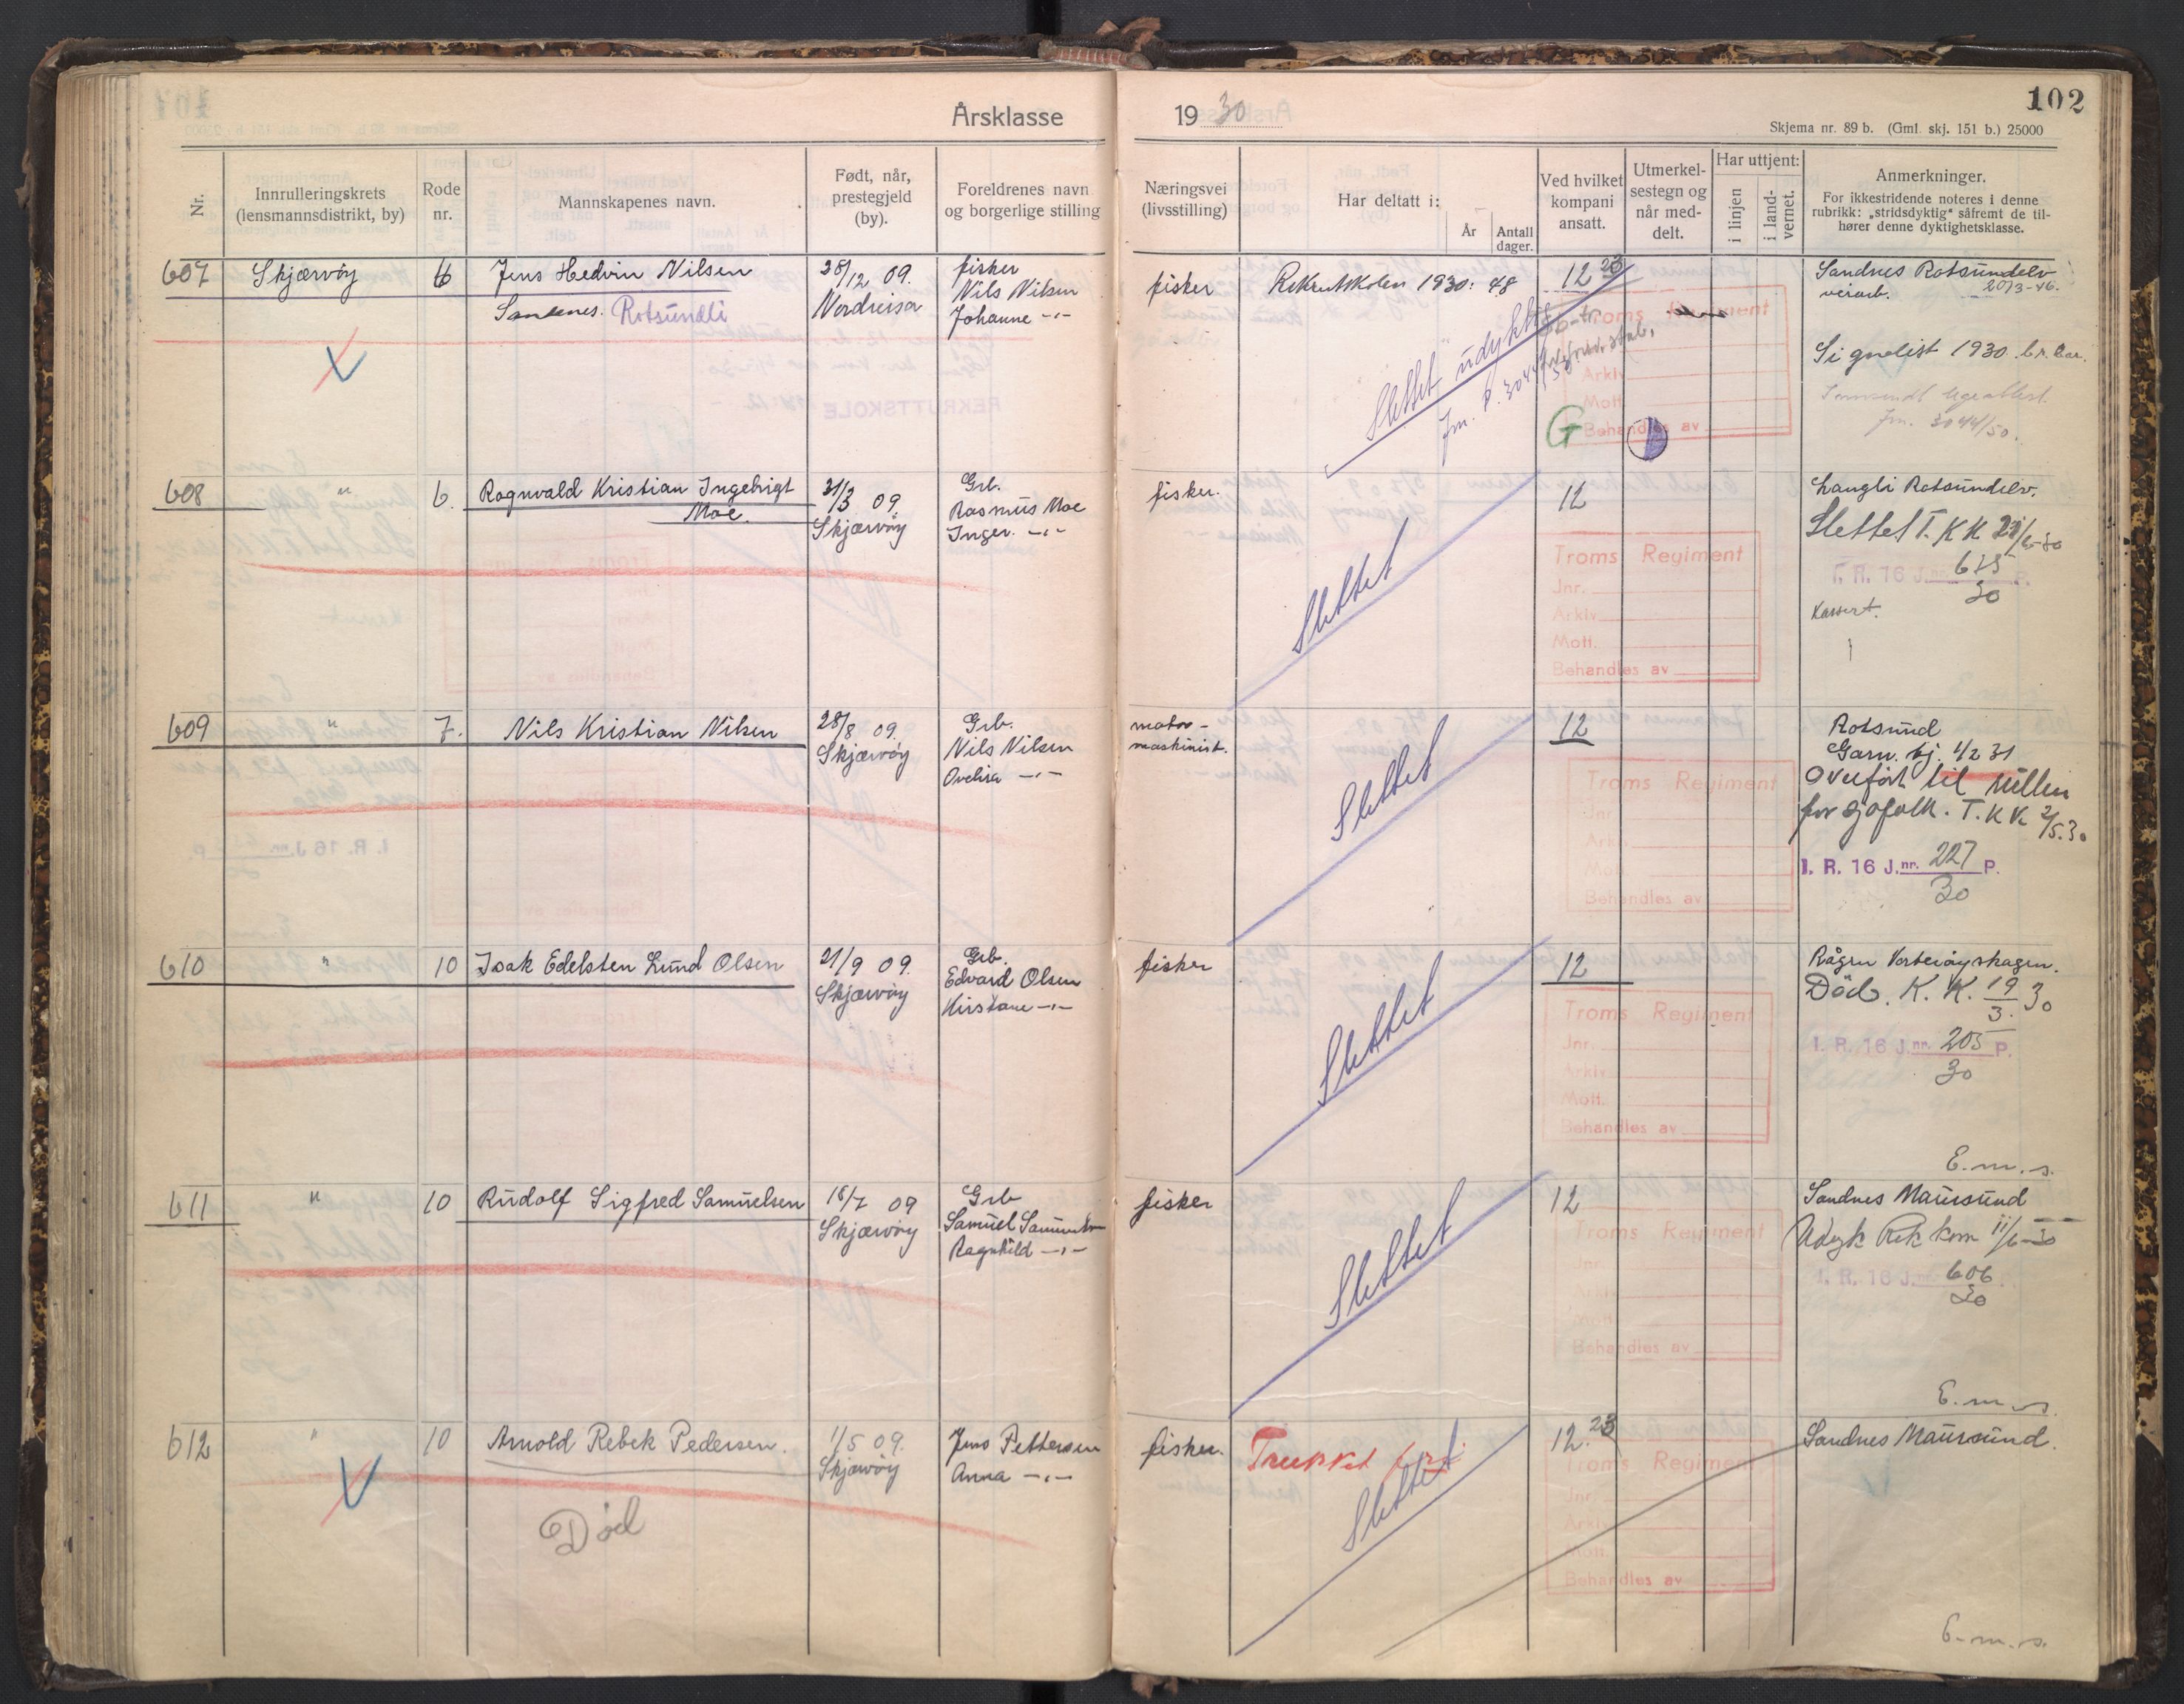 Årsklasse
19 30
102
Skjema nr. 89 b. (Gml. skj. 151 b.) 25000
Nr.
Innrulleringskrets
(lensmannsdistrikt, by)
Rode
nr.
Mannskapenes navn.
Født, når,
prestegjeld
(by).
Foreldrenes navn
og borgerlige stilling
Næringsvei
(livsstilling)
Har deltatt i:
År
Antall
dager.
Ved hvilket
kompani
ansatt.
Utmerkel-
sestegn og
når med-
delt.
Har uttjent:
i linjen
i land-
vernet.
Anmerkninger.
For ikkestridende noteres i denne
rubrikk: „stridsdyktig" såfremt de til-
hører denne dyktighetsklasse.
607
Skjærvöy
6
Jens Hedvin Nilsen
Sandnes. Rotsundli
28/12 09.
Nordreisa
fisker
Nils Nilsen
Johanne -"-
fisker
Rekruttskolen 1930: 48
Slettet udyktig
Jnr. P. 3044/50
12 23
G
Troms Regiment
Arkiv
Mott.
Behandles av
Sandnes Rotsundelv
20/3-46.
Signalist 1930
Jnr. 3044/50.
608
"
6.
Ragnvald Kristian Ingebrigt
Moe.
31/3 09.
Skjærvöy
Grb.
Rasmus Moe
Inger. -"-
fisker.
Slettet
12
Troms Regiment
Jnr.
Arkiv
Mott.
Behandles av
Langli Rotsundelv.
Slettet T. K K 21/6-30
I. R. 16 J.nr. 615 P.
30
Kassert.
609
"
7.
Nils Kristian Nilsen
28/8 09.
Skjærvöy
Grb.
Nils Nilsen
Ovelisa -"-
motor-
maskinist.
Slettet
12
Troms Regiment
Jnr.
Arkiv
Mott.
Behandles av
Rotsund
Garn. bj. 1/2 31
Overført til rullen
for sjøfolk. T. K K 2/5.30
I. R. 16 J.nr. 227 P.
30
610
"
10
Isak Edelsten Lund Olsen
21/9 09.
Skjærvöy
Grb.
Edvard Olsen
Kristane -"-
fisker
Slettet
12
Troms Regiment
Jnr.
Arkiv
Mott.
Behandles av
Vorteröyskagen.
Död. K. K. 19/3. 30
I. R. 16 J.nr. 205 P.
30
E. m. s.
611
"
10
Rudolf Sigfred Samuelsen
18/7 09
Skjærvöy
Grb
Samuel Samuelsen
Ragnhild -"-
fisker
Slettet
12
Troms Regiment
Jnr.
Arkiv
Mott.
Behandles av
Sandnes Maursund
Udyk Rek kom 11/6-30
I. R. 16 J.nr. 606
30
E. m. s.
612
"
10
Arnold Rebek Pedersen.
1/5 09.
Skjærvöy
Jens Pettersen
Anna -"-
Død
fisker.
Trukket fri
Slettet
12. 23
Troms Regiment
Jnr.
Arkiv
Mott.
Behandles av
Sandnes Maursund.
E. m. s.